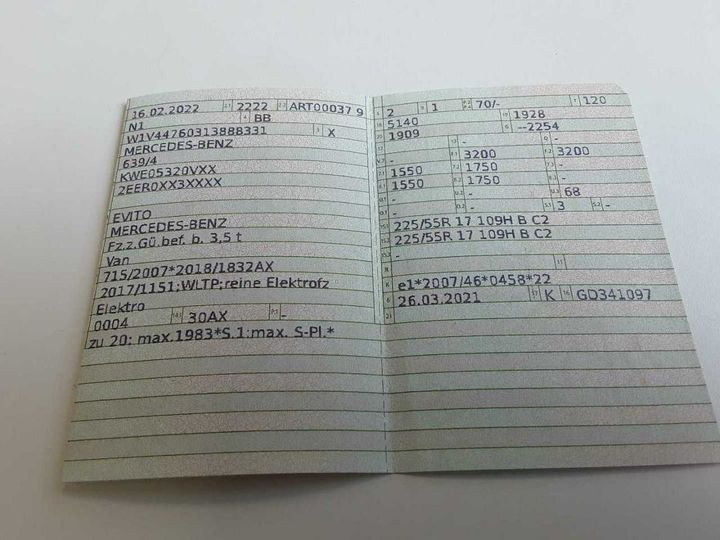 16.02.2022 2222 ART00037 9
N1 BB
W1V44760313888331 X
MERCEDES-BENZ
639/4
KWE05320VXX
2EER0XX3XXXX
EVITO
MERCEDES-BENZ
Fz.z.Gü.bef. b. 3,5 t
Van
715/2007*2018/1832AX
2017/1151;WLTP;reine Elektrofz
Elektro
0004 30AX -
zu 20: max.1983*S.1:max. S-Pl.*
2 1 70/- 120
5140 1928
1909 --2254
- - -
- 3200 3200
1550 1750 -
1550 1750 -
- - 68
- - 3 -
225/55R 17 109H B C2
225/55R 17 109H B C2
-
e1*2007/46*0458*22
26.03.2021 K GD341097